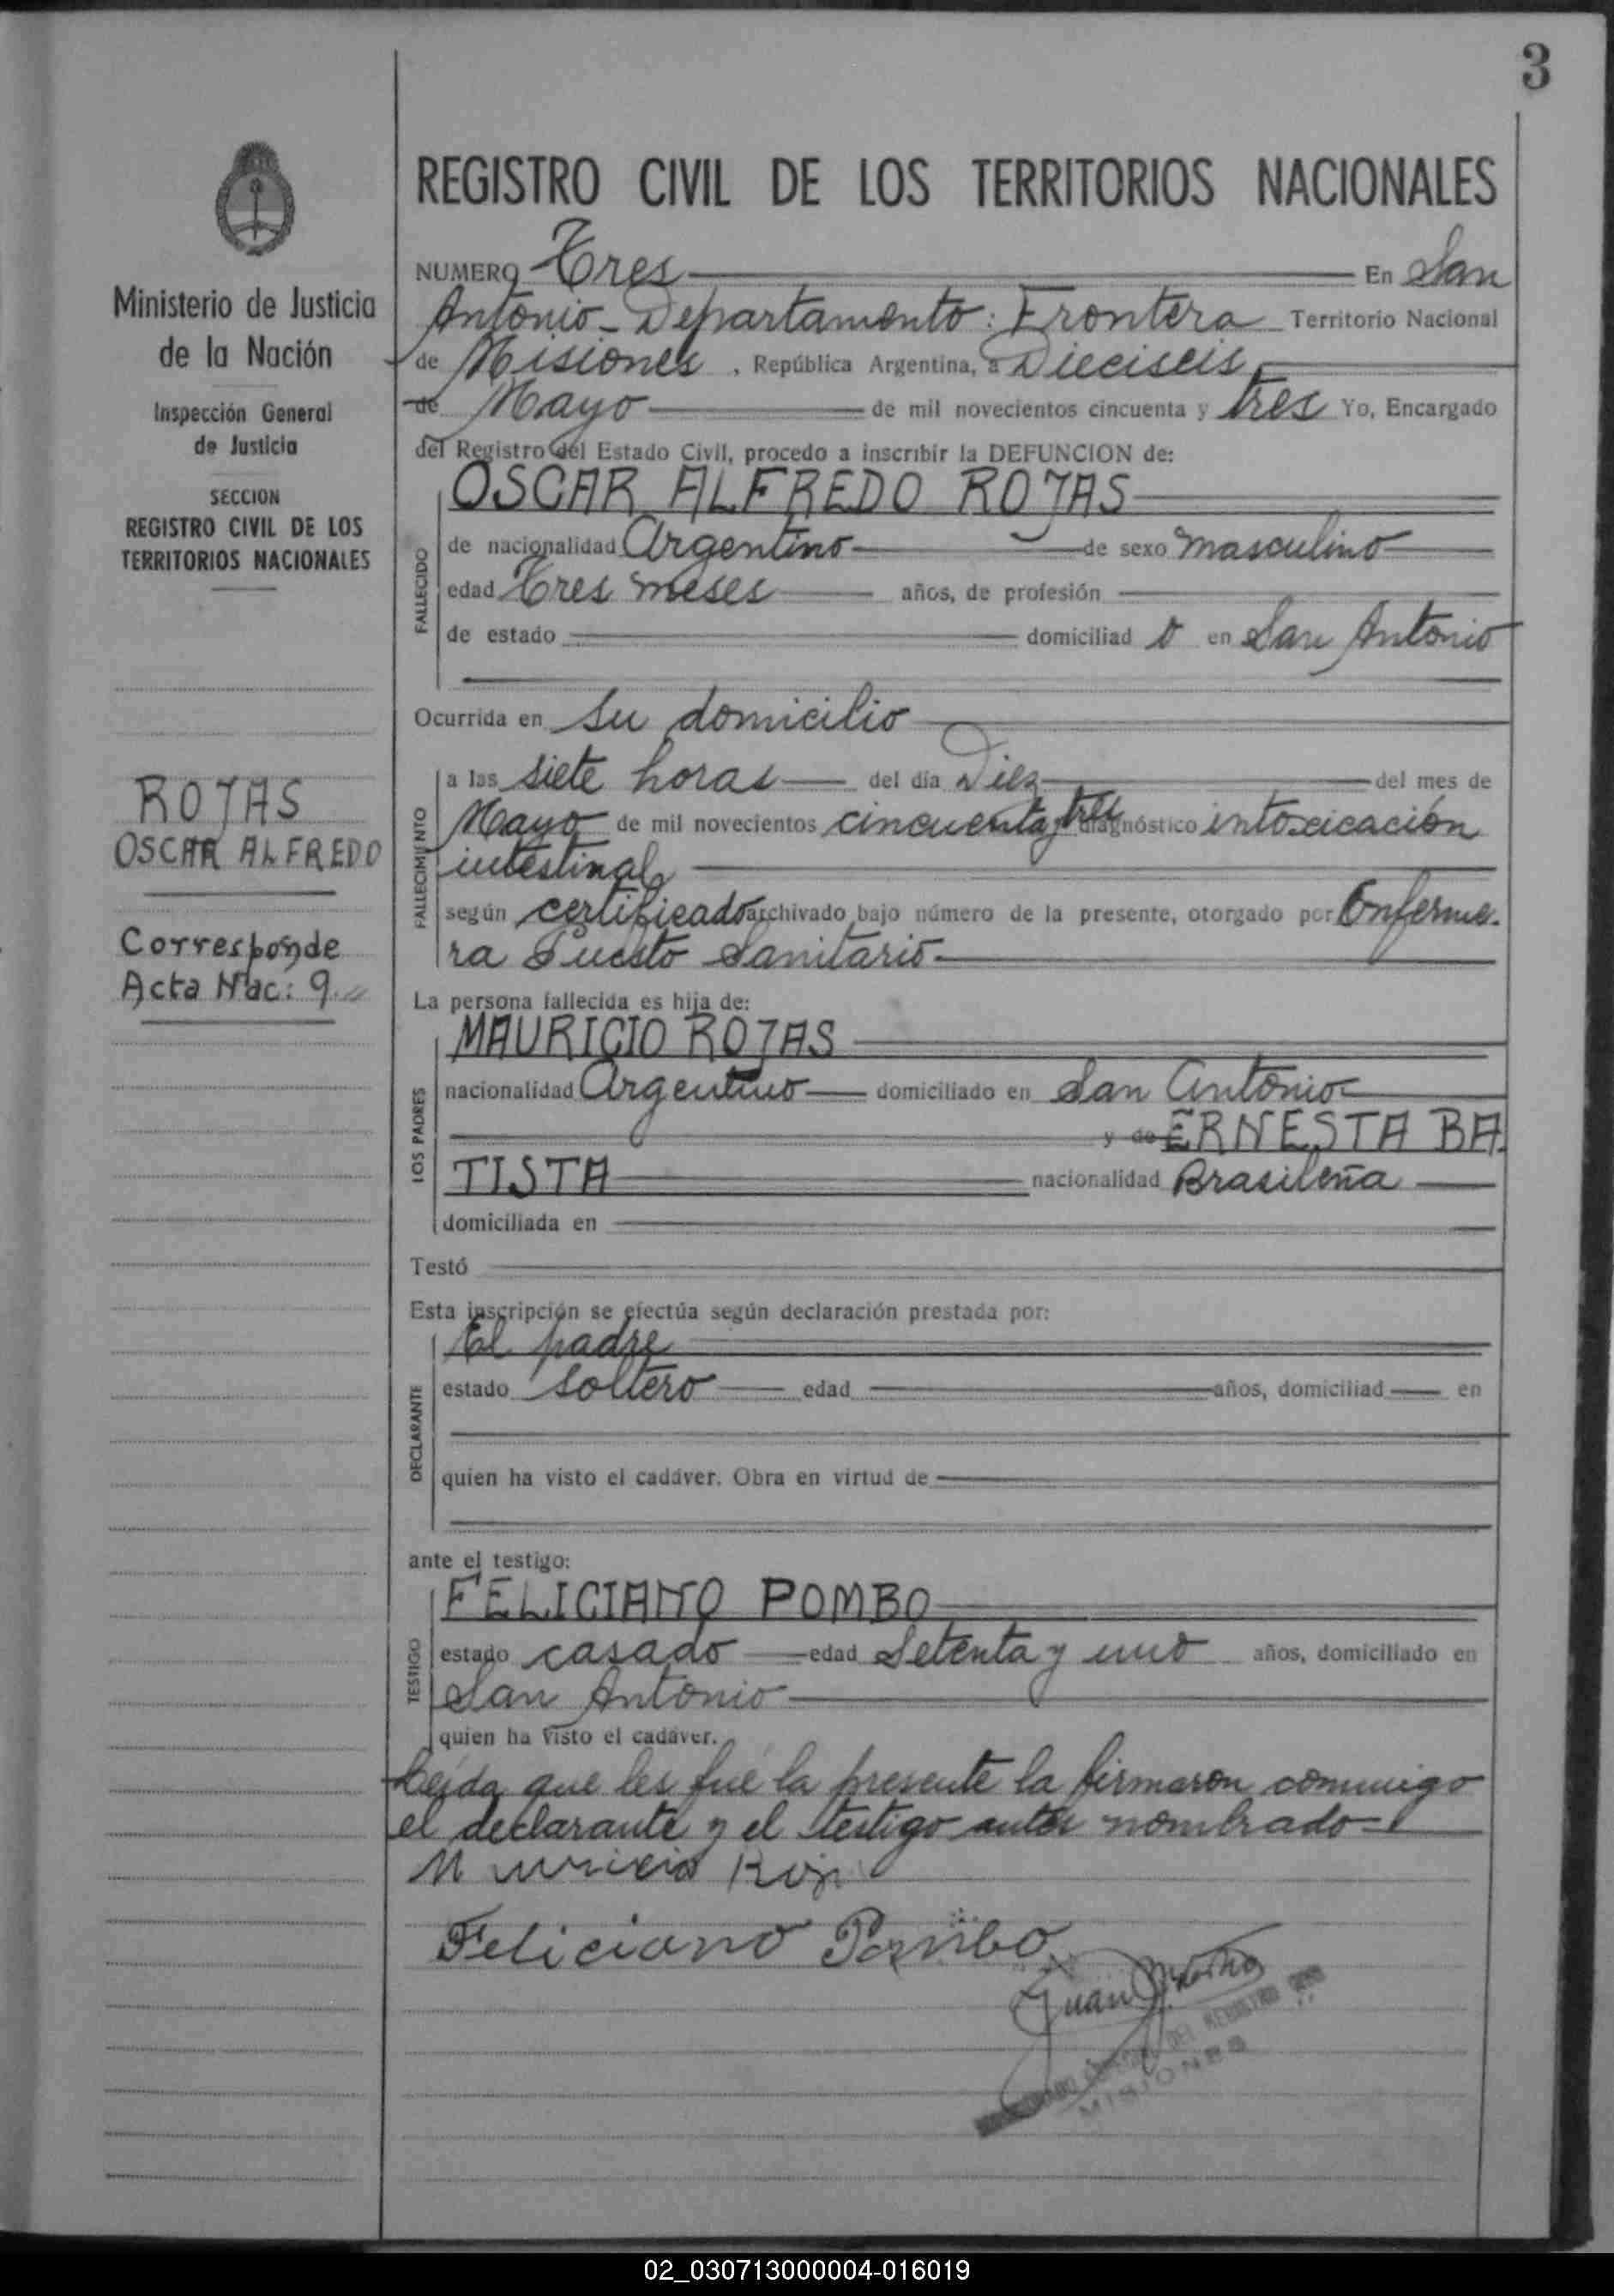 3
Ministerio de Justicia
de la Nación
Inspección General
de Justicia
SECCION
REGISTRO CIVIL DE LOS
TERRITORIOS NACIONALES
ROJAS
OSCAR ALFREDO
Corresponde
Acta Nac: 9.
REGISTRO CIVIL DE LOS TERRITORIOS NACIONALES
NUMERO Tres En San
Antonio - Departamento: Frontera Territorio Nacional
de Misiones, República Argentina, a Dieciseis
de Mayo de mil novecientos cincuenta y tres Yo, Encargado
del Registro del Estado Civil, procedo a inscribir la DEFUNCION de:
FALLECIDO
OSCAR ALFREDO ROJAS
de nacionalidad Argentino de sexo masculino
edad Tres meses años, de profesión
de estado domiciliad o en San Antonio
Ocurrida en su domicilio
FALLECIMIENTO
a las siete horas del día Diez del mes de
Mayo de mil novecientos cincuenta y tres diagnóstico intoxicación
intestinal
según certificado archivado bajo número de la presente, otorgado por Enferme-
ra Puesto Sanitario
La persona fallecida es hija de:
LOS PADRES
MAURICIO ROJAS
nacionalidad Argentino domiciliado en San Antonio
y de ERNESTA BA
TISTA nacionalidad Brasileña
domiciliada en
Testó
Esta inscripción se efectúa según declaración prestada por:
DECLARANTE
El padre
estado soltero edad años, domiciliad en
quien ha visto el cadáver. Obra en virtud de
ante el testigo:
TESTIGO
FELICIANO POMBO
estado casado edad Setenta y uno años, domiciliado en
San Antonio
quien ha visto el cadáver.
Leida que les fué la presente la firmaron conmigo
el declarante y el testigo antes nombrado
Feliciano Pombo
Juan
DEL REGISTRO
MISIONES
02_030713000004-016019